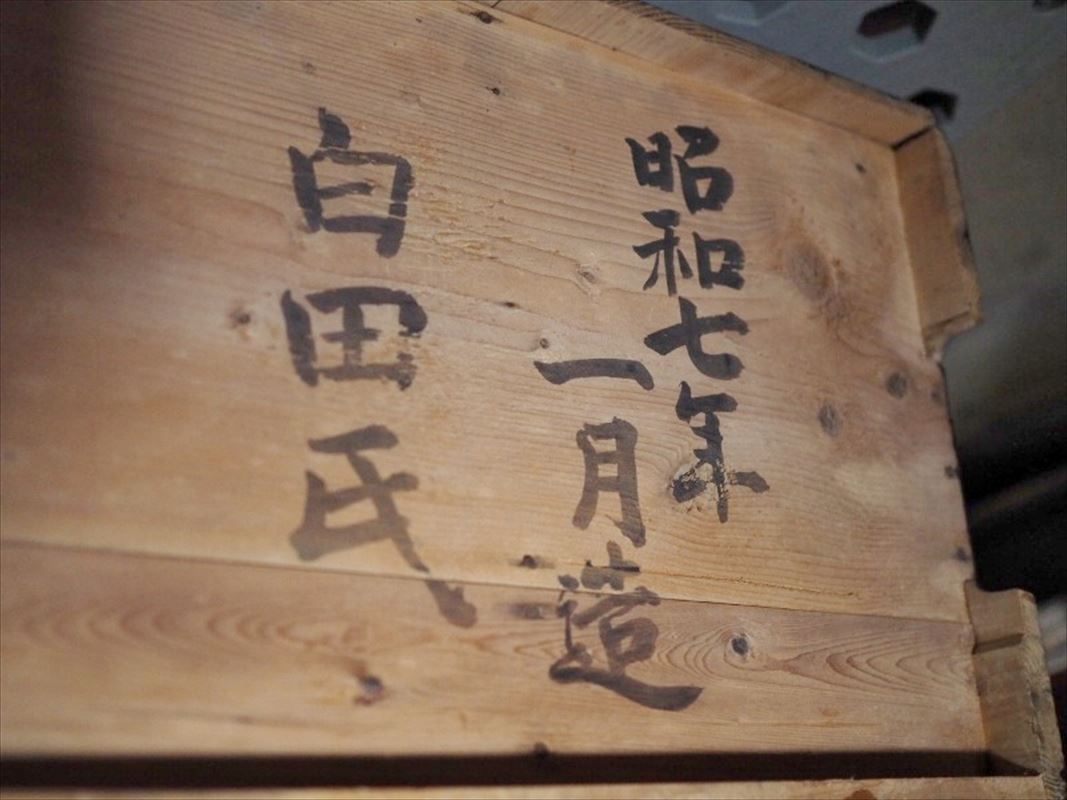 昭和七年
一月造
白田氏